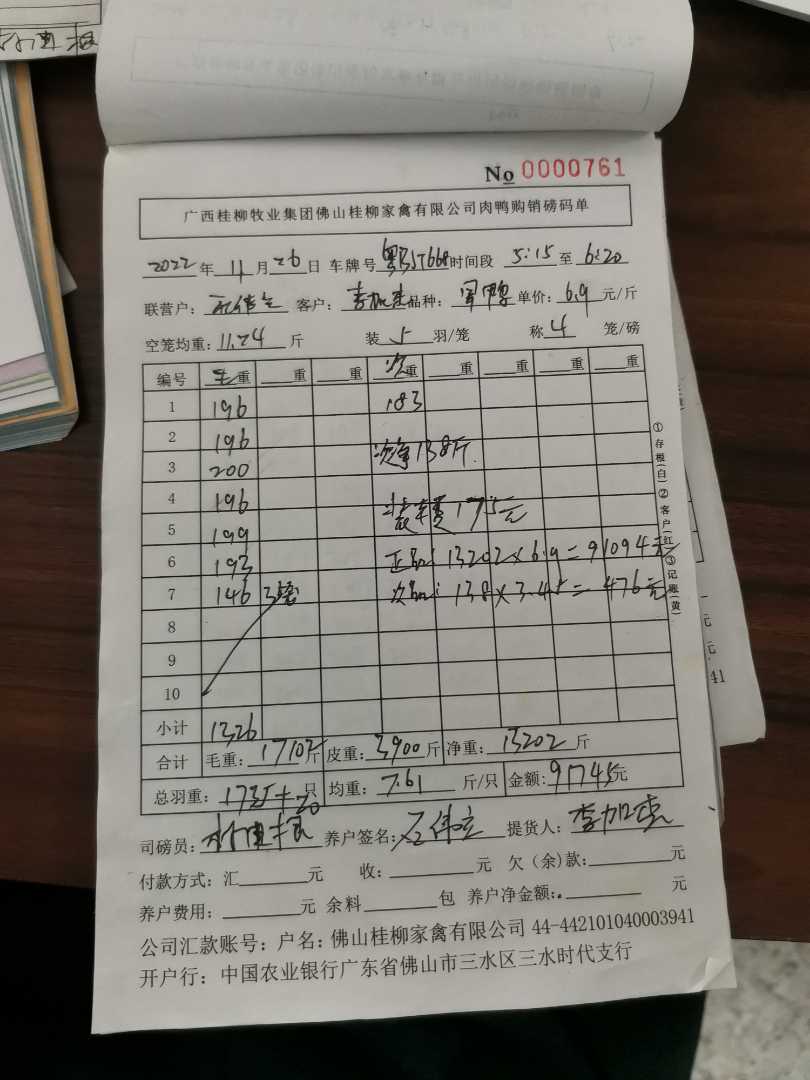 No 0000761
广西桂柳牧业集团佛山桂柳家禽有限公司肉鸭购销磅码单
2022年11月26日 车牌号 时间段 5:15 至 6:20
联营户: 客户: 品种: 单价: 6.9 元/斤
空笼均重: 11.24 斤 装 5 羽/笼 称 4 笼/磅
编号 毛重 重 重 次重 重 重 重 重
1 196 183
2 196
3 200 次净138斤.
4 196
5 199 装车费175元
6 193 正品: 13202×6.9=91094元
7 146 3笼 次品: 138×3.45=476元
8
9
10
小计 1326
合计 毛重: 17102斤 皮重: 3900斤 净重: 13202斤
总羽重: 1735+20只 均重: 7.61 斤/只 金额: 91745元
司磅员: 养户签名: 提货人:
付款方式: 汇 元 收: 元 欠(余)款: 元
养户费用: 元 余料 包 养户净金额: 元
公司汇款账号: 户名: 佛山桂柳家禽有限公司 44-442101040003941
开户行: 中国农业银行广东省佛山市三水区三水时代支行
①存根(白)②客户(红)③记账(黄)